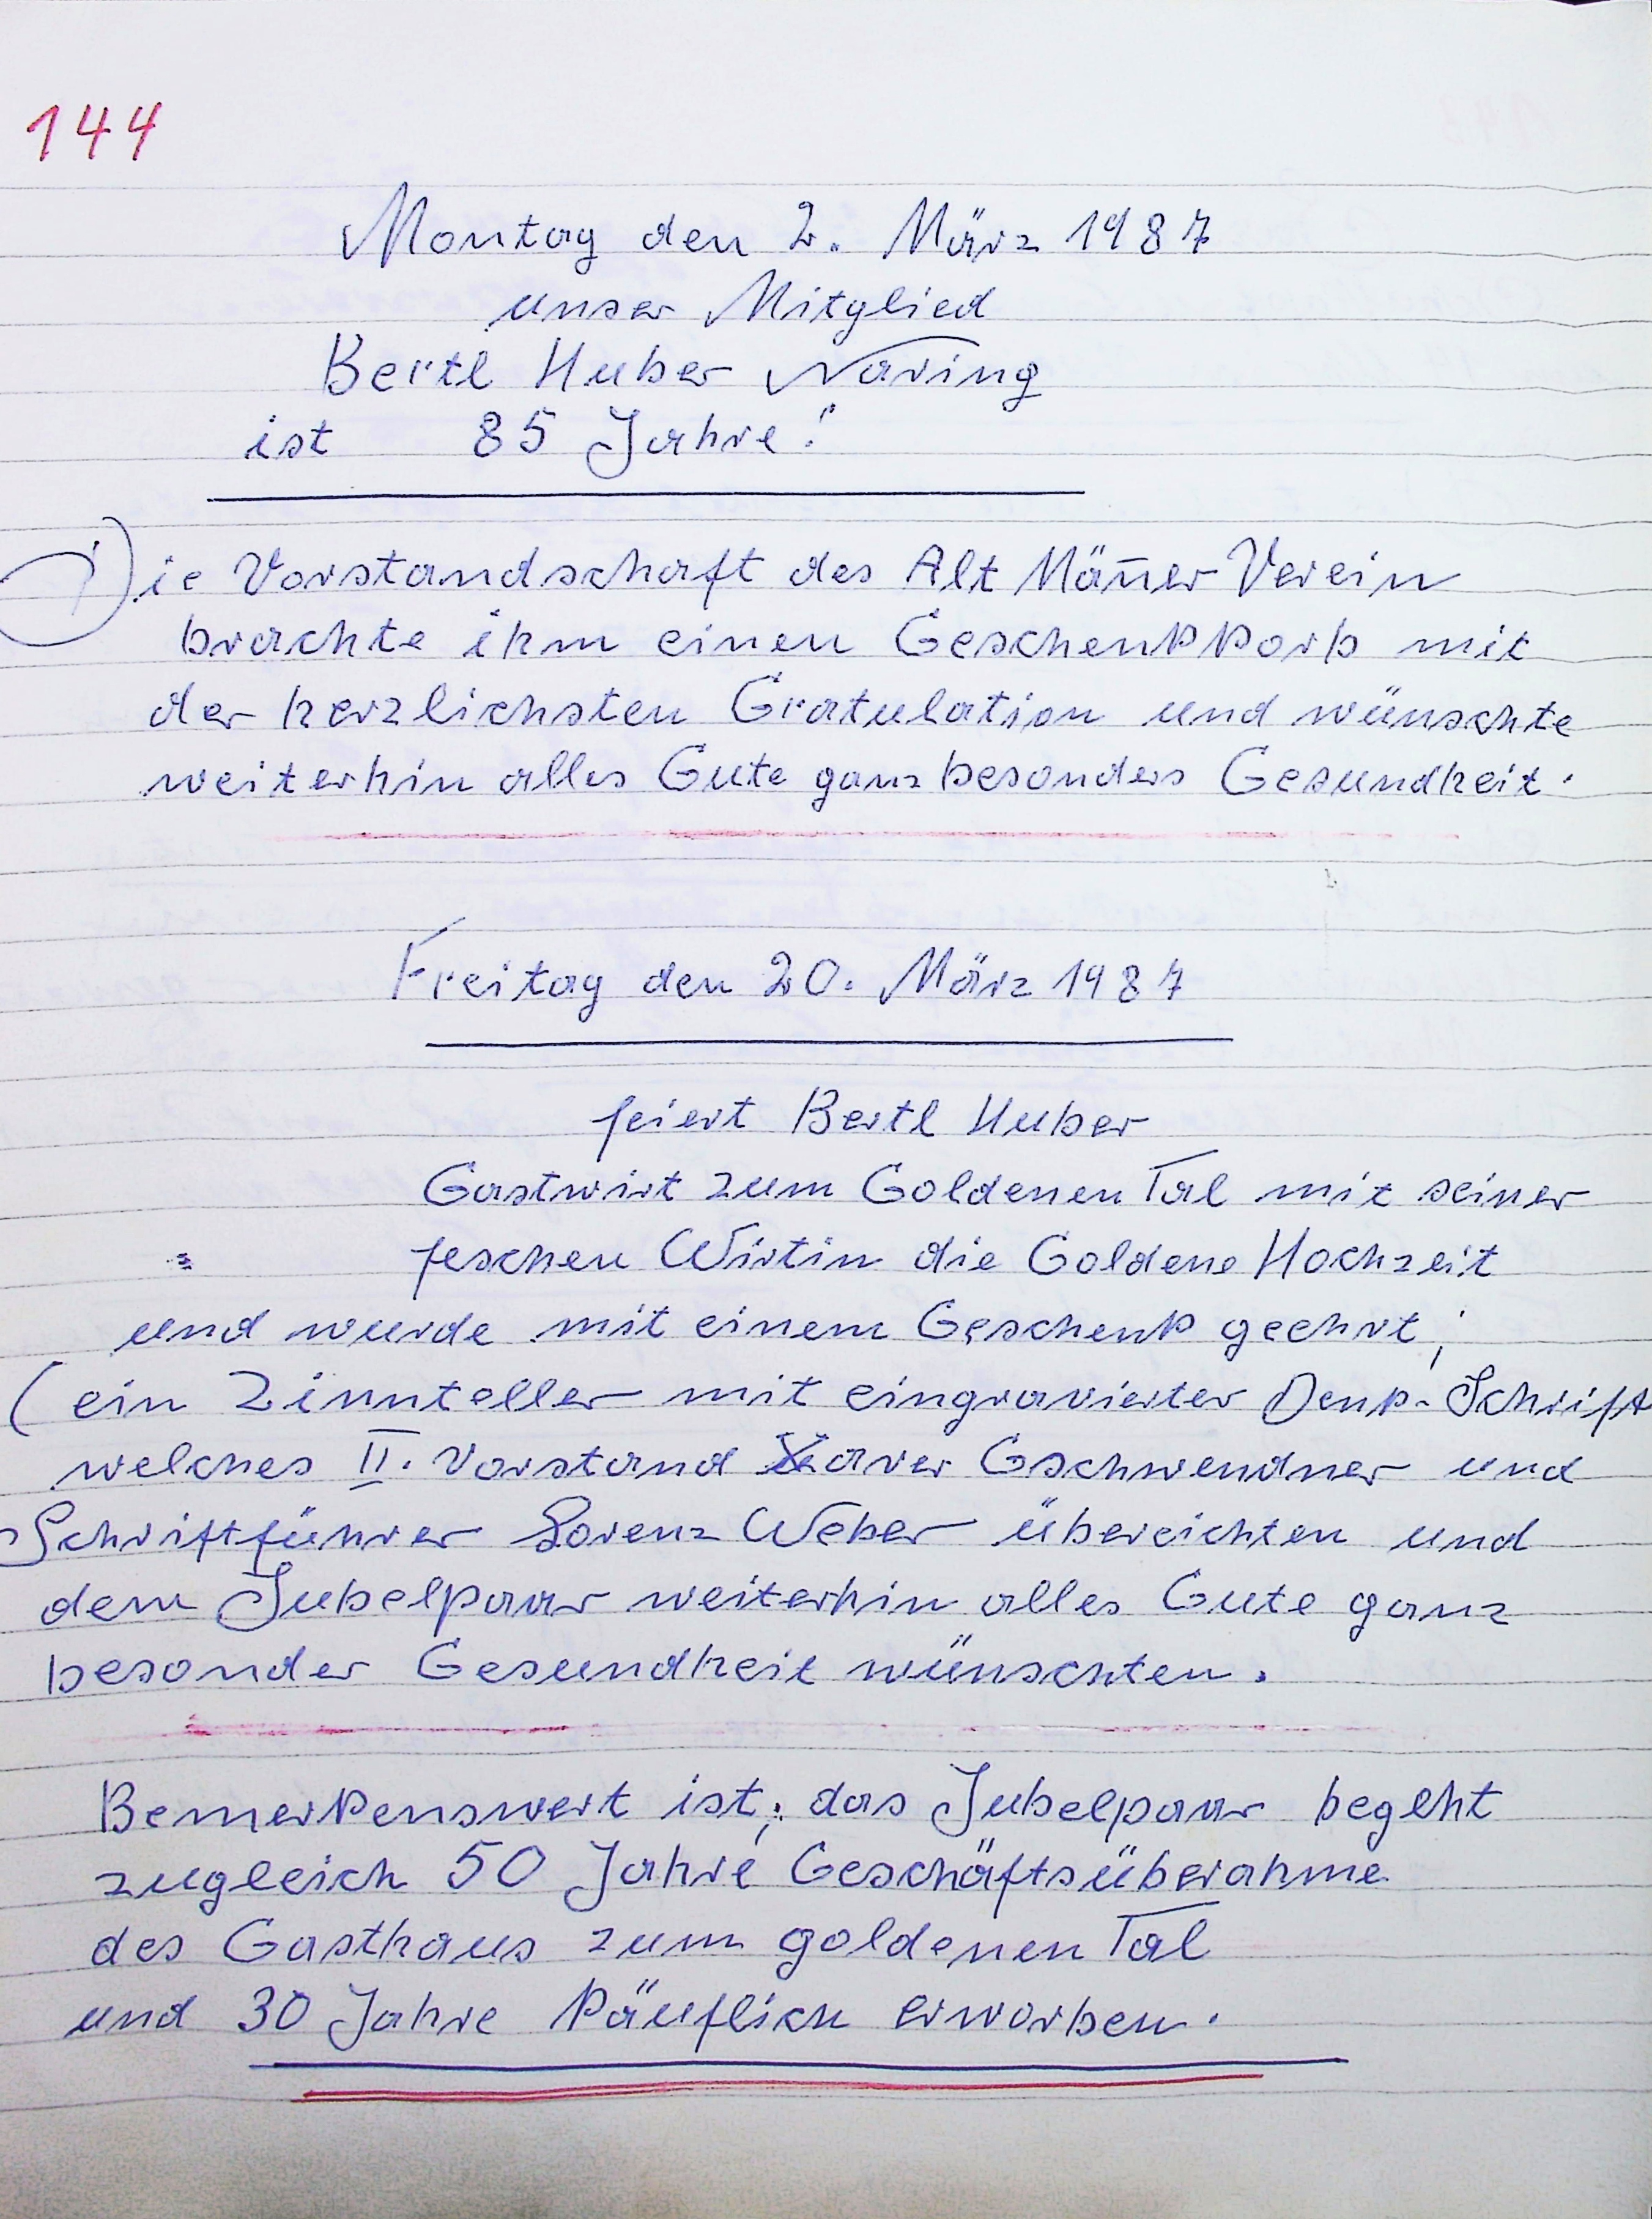 144
Montag den 2. März 1987
unser Mitglied
Bertl Huber Naring
ist 85 Jahre!
Die Vorstandschaft des Alt Män̄er Verein
brachte ihm einen Geschenkkorb mit
der herzlichsten Gratulation und wünschte
weiterhin alles Gute ganz besonders Gesundheit.
Freitag den 20. März 1987
feiert Bertl Huber
Gastwirt zum Goldenen Tal mit seiner
feschen Wirtin die Goldene Hochzeit
und wurde mit einem Geschenk geehrt;
(ein Zinnteller mit eingravierter Denk-Schrift
welches II. Vorstand Xaver Gschwendner und
Schriftführer Lorenz Weber übereichten und
dem Jubelpaar weiterhin alles Gute ganz
besonder Gesundheit wünschten.
Bemerkenswert ist; das Jubelpaar begeht
zugleich 50 Jahre Geschäftsüberahme
des Gasthaus zum goldenen Tal
und 30 Jahre käuflich erworben.